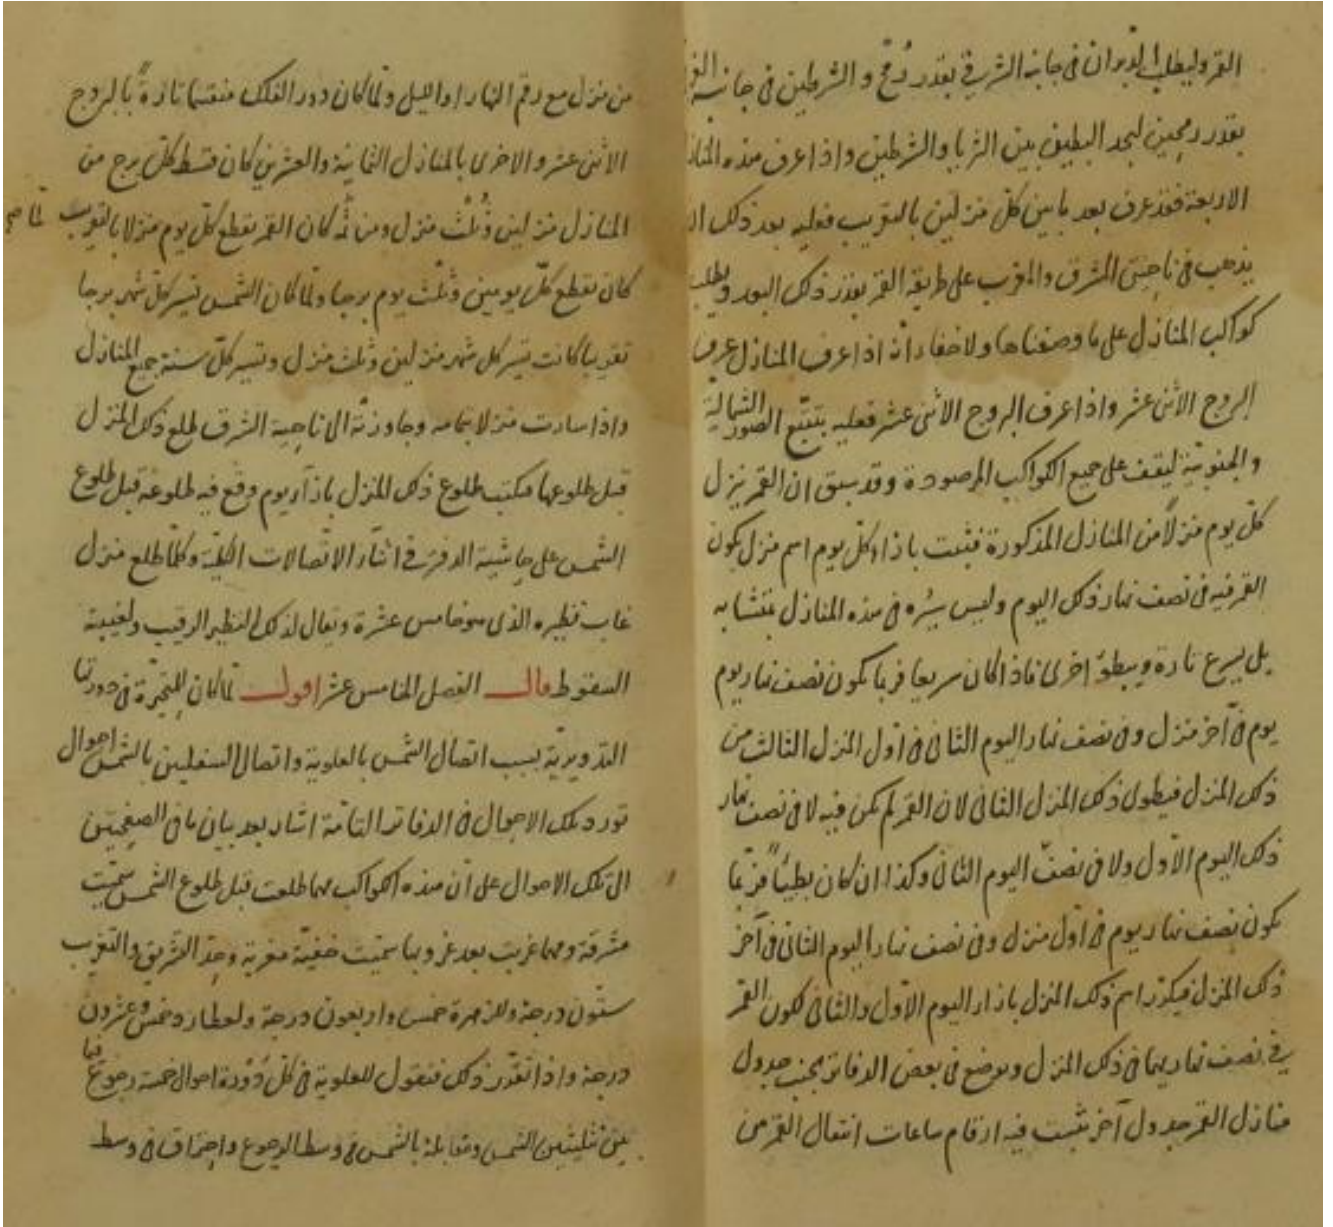 القمر وليطلب الدبران في جانبه الشرقي بقدر رمح والشرطين في جانبه
بقدر رمحين ليجد البطين بين الثريا والشرطين واذا عرف هذه المناز
الاربعة فقد عرف بعد ما بين كل منزلين بالتقريب فعليه بعد ذلك ان
يذهب في ناحيتي المشرق والمغرب على طريقة القمر بقدر ذلك البعد ويطلب
كواكب المنازل على ما وصفناها ولا خفاء انه اذا عرف المنازل عرف
البروج الاثنى عشر واذا عرف البروج الاثنى عشر فعليه بتتبع الصور الشمالية
والجنوبية ليقف على جميع الكواكب المرصودة وقد سبق ان القمر ينزل
كل يوم منزلاً من المنازل المذكورة فيثبت بازاء كل يوم اسم منزل يكون
القمر فيه في نصف نهار ذلك اليوم وليس سيره في هذه المنازل بمتشابه
بل يسرع تارة ويبطؤ اخرى فاذا كان سريعا فربما يكون نصف نهار يوم
يوم في آخر منزل وفي نصف نهار اليوم الثاني في اول المنزل الثالث من
ذلك المنزل فيطول ذلك المنزل الثاني لان القمر لم يكن فيه لا في نصف نهار
ذلك اليوم الاول ولا في نصف اليوم الثاني وكذا ان كان بطيئاً فربما
يكون نصف نهار يوم في اول منزل وفي نصف نهار اليوم الثاني في آخر
ذلك المنزل فيكرر اسم ذلك المنزل بازاء اليوم الاول والثاني لكون القمر
في نصف نهاريهما في ذلك المنزل ويوضع في بعض الدفاتر بجنب جدول
منازل القمر جدول آخر يثبت فيه ارقام ساعات انتقال القمر من
من منزل مع رقم النهار او الليل ولما كان دور الفلك منقسما تارةً بالبروج
الاثنى عشر والاخرى بالمنازل الثمانية والعشرين كان قسط كل برج من
المنازل منزلين وثُلث منزل ومن ثمه كان القمر يقطع كل يوم منزلا بالتقريب
كان يقطع كل يومين وثلث يوم برجا ولما كان الشمس تسير كل شهر برجا
تقريبا كانت تسير كل شهر منزلين وثلث منزل وتسير كل سنة جميع المنازل
واذا سارت منزلا بتمامه وجاوزته الى ناحية الشرق طلع ذلك المنزل
قبل طلوعها فيكتب طلوع ذلك المنزل بازاء يوم وقع فيه طلوعه قبل طلوع
الشمس على حاشية الدفتر في اثناء الاتصالات الكلية وكلما طلع منزل
غاب نظيره الذي هو خامس عشرة ويقال لذلك النظير الرقيب ولغيبته
السقوط قال الفصل الخامس عشر اقول لما كان للمتحيرة في دورتها
التدويرية بسبب اتصال الشمس بالعلوية واتصال السفليين بالشمس احوال
تورد تلك الاحوال في الدفاتر التامة اشار بعد بيان ما في الصفحتين
الى تلك الاحوال على ان هذه الكواكب مهما طلعت قبل طلوع الشمس سميت
مشرقة ومهما غربت بعد غروبها سميت مغربة وحد التشريق والتغريب
ستون درجة وللزهرة خمس واربعون درجة ولعطارد خمس وعشرون
درجة واذا تقرر ذلك فنقول للعلوية في كل دورة احوال خمسة رجوع
بين تثليثين الشمس ومقابلة بالشمس في وسط الرجوع واحتراق في وسط